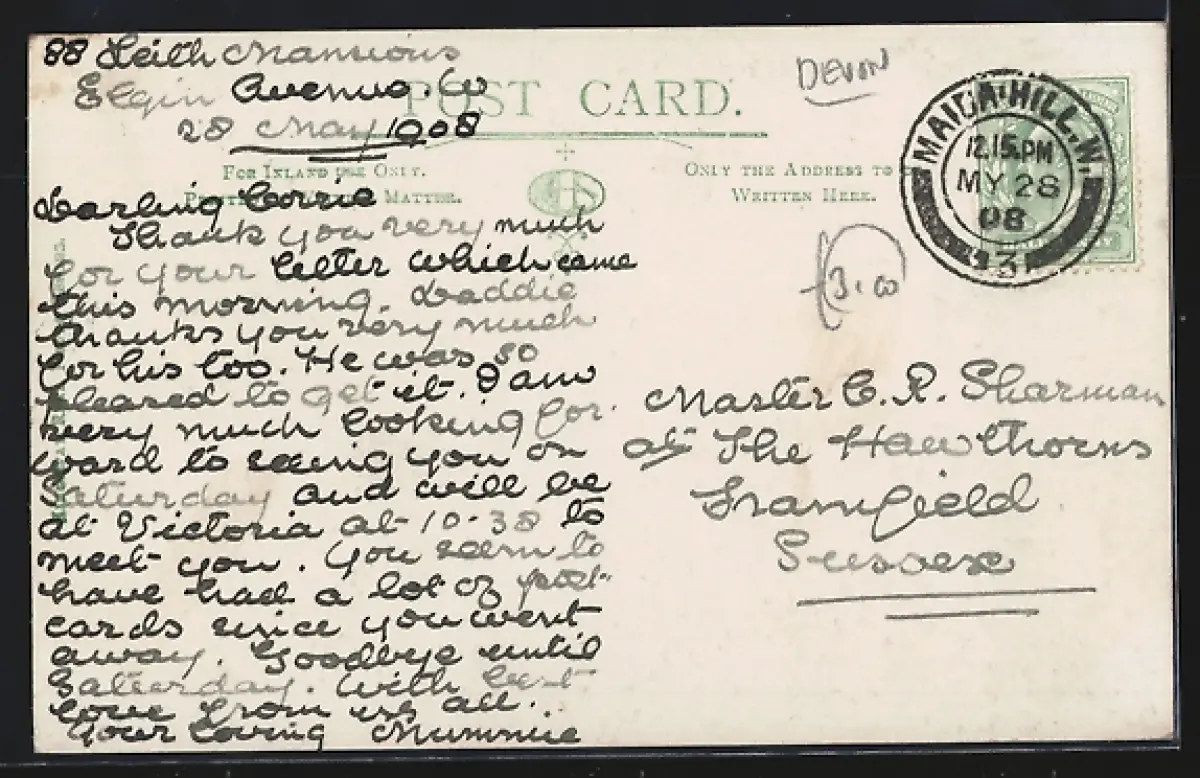 88 Leith Mansions
Elgin Avenue. W
28 May 1908
Darling Corrie
Thank you very much
for your letter which came
this morning. Daddie
thanks you very much
for his too. He was so
pleased to get it. I am
very much looking for-
ward to seeing you on
Saturday and will be
at Victoria at 10-38 to
meet you. You seem to
have had a lot of post-
cards since you went
away. Goodbye until
Saturday. With best
love from us all.
Your loving Mummie
POST CARD.
FOR INLAND USE ONLY.
MATTER.
ONLY THE ADDRESS TO
WRITTEN HERE.
DEVON
MAIDA-HILL.W.
12.15.PM
MY 28
08
3
3.00
Master C. R. Sharman
at The Hawthorns
Framfield
Sussex